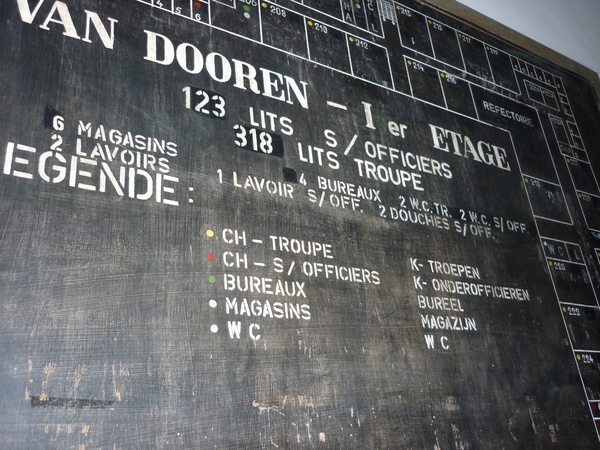 208
210
212
214
216
REFECTOIRE
VAN DOOREN - I er ETAGE
123 LITS S/OFFICIERS
318 LITS TROUPE
6 MAGASINS
2 LAVOIRS
4 BUREAUX 2 W.C.TR. 2 W.C. S/OFF.
1 LAVOIR S/OFF. 2 DOUCHES S/OFF.
EGENDE:
CH - TROUPE K- TROEPEN
CH - S/OFFICIERS K- ONDEROFFICIEREN
BUREAUX BUREEL
MAGASINS MAGAZIJN
W C W C
222
224